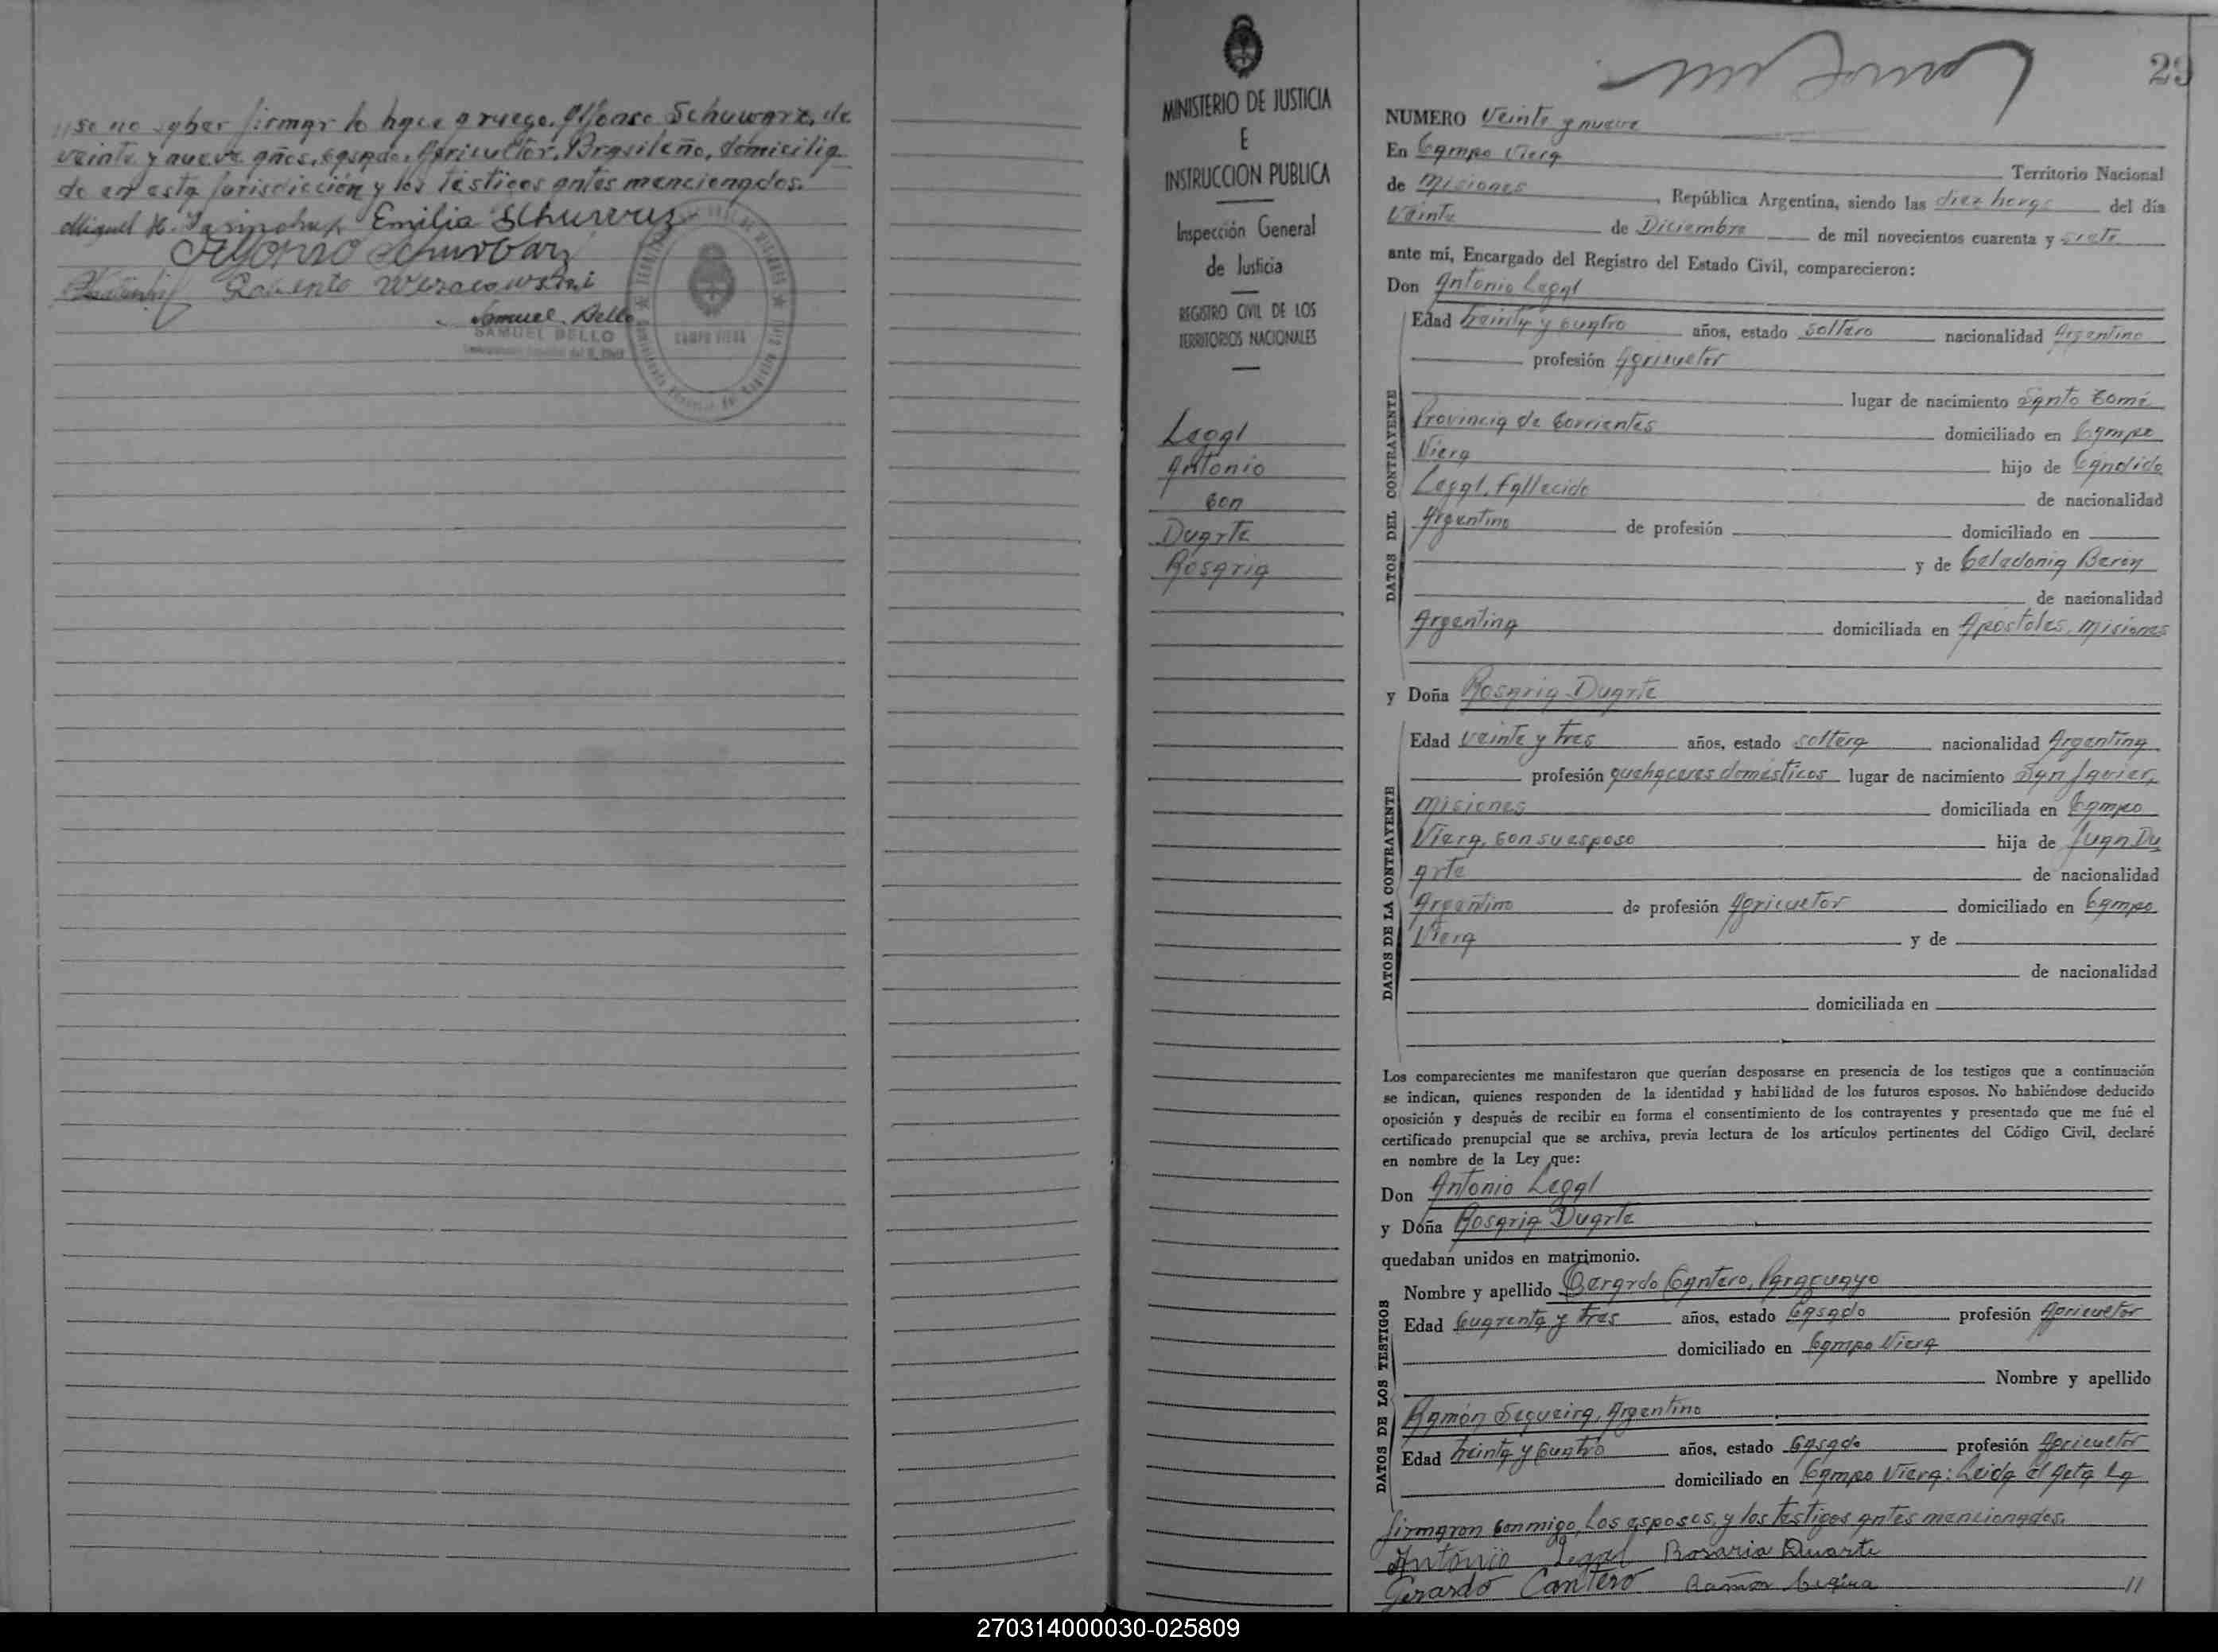 se no saber firmar lo hace a ruego, Alfonso Schuwarz, de
veinte y nueve años, casado, Agricultor, Brasileño, domicilia
do en esta jurisdicción y los testigos antes mencionados.
Miguel H. Emilia Schurvuz
Alfonso Schurvarz
SAMUEL BELLO
Samuel Bello
CAMPO VIERA
MINISTERIO DE JUSTICIA
E
INSTRUCCION PUBLICA
Inspección General
de Justicia
REGISTRO CIVIL DE LOS
TERRITORIOS NACIONALES
Legal
Antonio
con
Duarte
Rosaria
29
NUMERO Veinte y nueve
En Campo Viera Territorio Nacional
de Misiones, República Argentina, siendo las diez horas del día
Veinte de Diciembre de mil novecientos cuarenta y siete
ante mí, Encargado del Registro del Estado Civil, comparecieron:
Don Antonio Legal
DATOS DEL CONTRAYENTE
Edad treinta y cuatro años, estado soltero nacionalidad Argentino
profesión Agricultor
lugar de nacimiento Santo Tomé
Provincia de Corrientes domiciliado en Campo
Viera hijo de Candido
Legal, Fallecido de nacionalidad
Argentino de profesión domiciliado en
y de Celedonia Berón
de nacionalidad
Argentina domiciliada en Apóstoles, Misiones
y Doña Rosaria Duarte
DATOS DE LA CONTRAYENTE
Edad veinte y tres años, estado soltera nacionalidad Argentina
profesión quehaceres domésticos lugar de nacimiento San Javier,
Misiones domiciliada en Campo
Viera, con su esposo hija de Juan Du
arte de nacionalidad
Argentino de profesión Agricultor domiciliado en Campo
Viera y de
de nacionalidad
domiciliada en
Los comparecientes me manifestaron que querían desposarse en presencia de los testigos que a continuación
se indican, quienes responden de la identidad y habilidad de los futuros esposos. No habiéndose deducido
oposición y después de recibir en forma el consentimiento de los contrayentes y presentado que me fué el
certificado prenupcial que se archiva, previa lectura de los artículos pertinentes del Código Civil, declaré
en nombre de la Ley que:
Don Antonio Legal
y Doña Rosaria Duarte
quedaban unidos en matrimonio.
DATOS DE LOS TESTIGOS
Nombre y apellido Gerardo Cantero, Paraguayo
Edad Cuarenta y tres años, estado Casado profesión Agricultor
domiciliado en Campo Viera
Nombre y apellido
Ramón Sequeira, Argentino
Edad treinta y cuatro años, estado Casado profesión Agricultor
domiciliado en Campo Viera: Leida el Acta la
firmaron conmigo, los esposos, y los testigos antes mencionados.
Antonio Legal Rosaria Duarte
Gerardo Cantero Ramon //
270314000030-025809